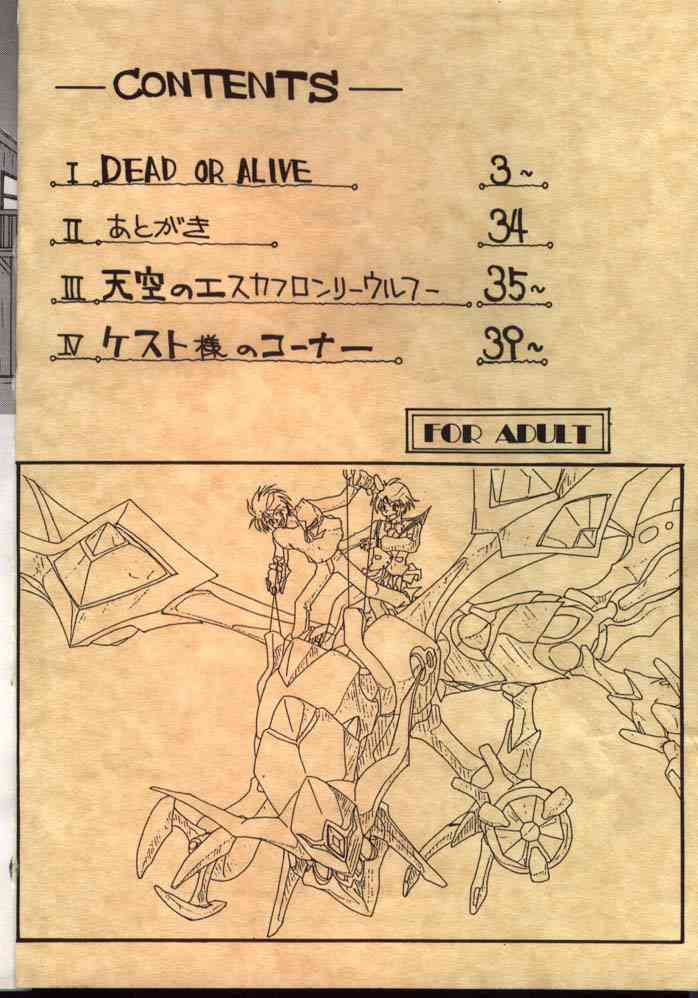 CONTENTS
I DEAD OR ALIVE 3~
II あとがき 34
III 天空のエスカフロンリーウルフー 35~
IV ケスト様のコーナー 39~
FOR ADULT